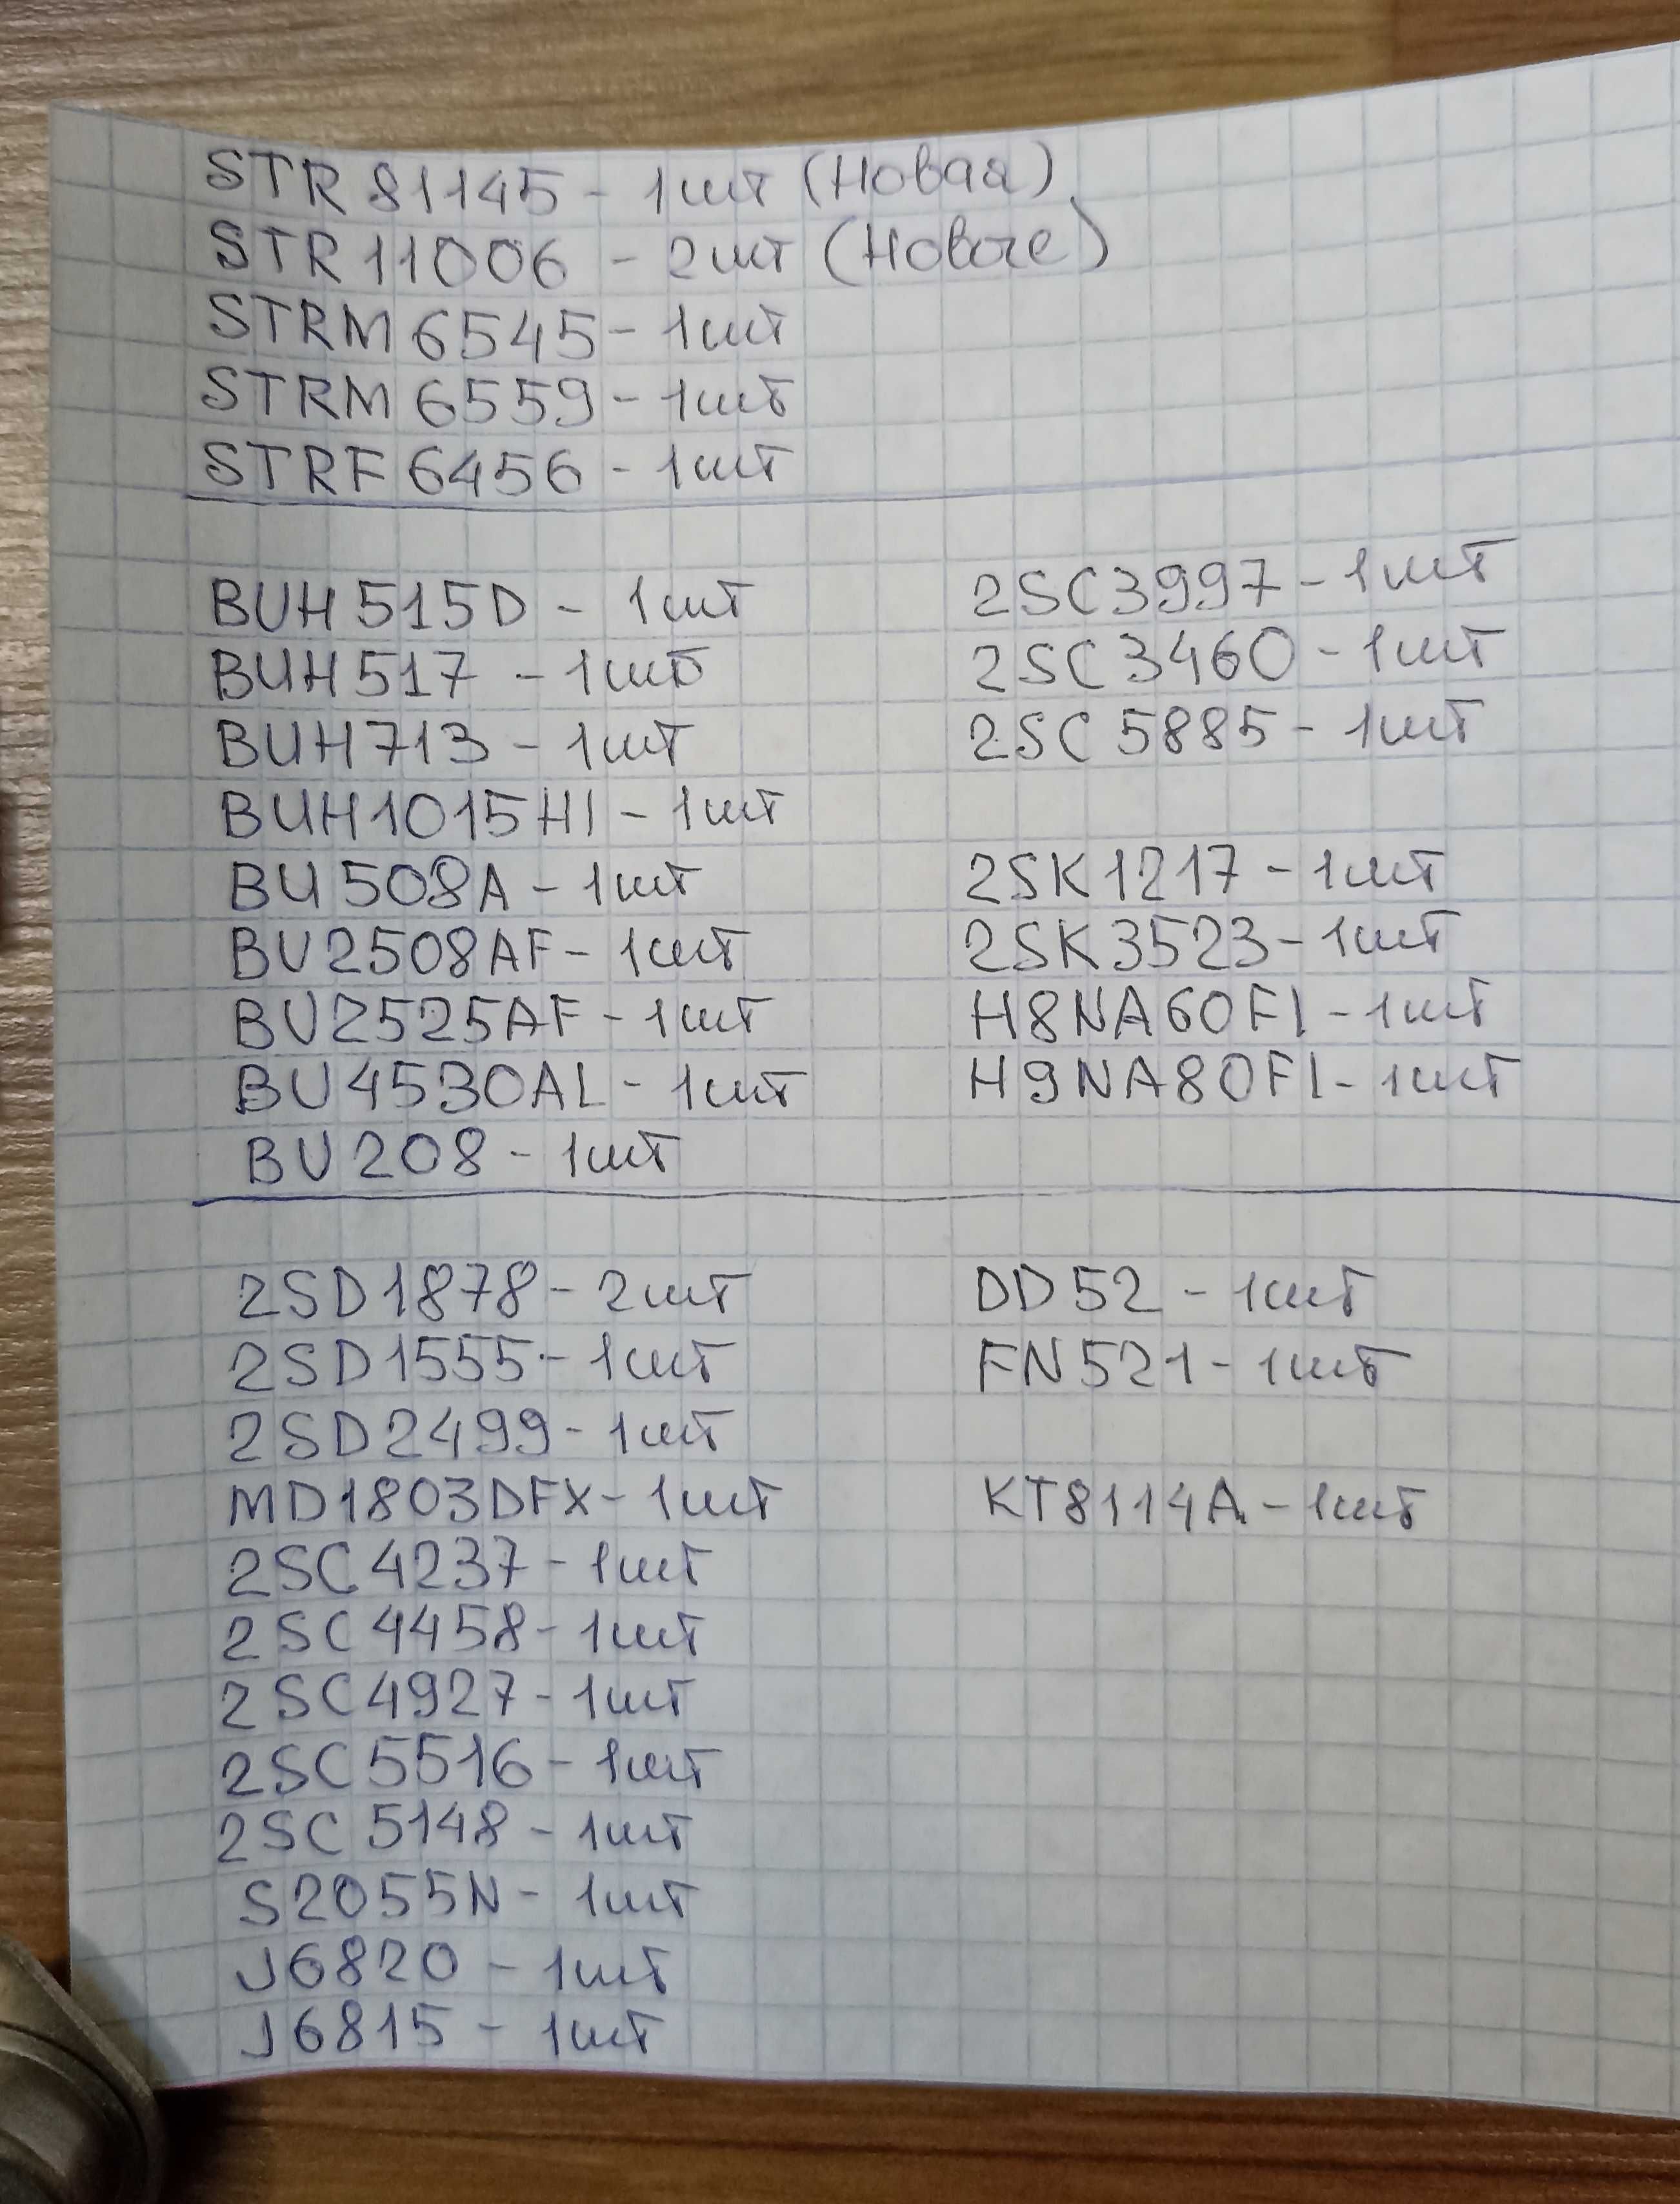 STR 81145 - 1шт (Новая)
STR 11006 - 2шт (Новые)
STRM 6545 - 1шт
STRM 6559 - 1шт
STRF 6456 - 1шт
BUH 515D - 1шт
BUH 517 - 1шт
BUH 713 - 1шт
BUH1015HI - 1шт
BU 508A - 1шт
BU2508AF - 1шт
BU2525AF - 1шт
BU4530AL - 1шт
BU 208 - 1шт
2SC3997 - 1шт
2SC3460 - 1шт
2SC 5885 - 1шт
2SK1217 - 1шт
2SK3523 - 1шт
H8NA60FI - 1шт
H9NA80FI - 1шт
2SD1878 - 2шт
2SD1555 - 1шт
2SD2499 - 1шт
MD1803DFX - 1шт
2SC4237 - 1шт
2SC4458 - 1шт
2SC4927 - 1шт
2SC5516 - 1шт
2SC 5148 - 1шт
S2055N - 1шт
J6820 - 1шт
J6815 - 1шт
DD52 - 1шт
FN521 - 1шт
KT8114A - 1шт